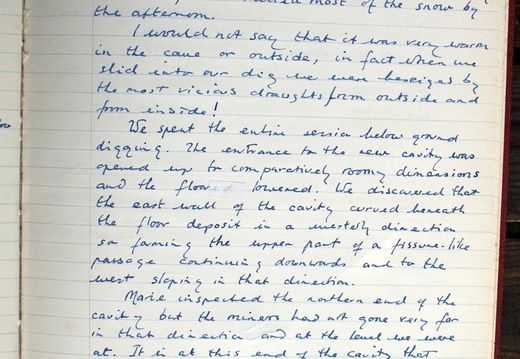 most of the snow by
the afternoon.
I would not say that it was very warm
in the cave or outside, in fact when we
slid into our dig we were beseiged by
the most vicious draughts from outside and
from inside!
We spent the entire session below ground
digging. The entrance to the new cavity was
opened up to comparatively roomy dimensions
and the floor lowered. We discovered that
the east wall of the cavity curved beneath
the floor deposit in a westerly direction
so forming the upper part of a fissure-like
passage continuing downwards and to the
west sloping in that direction.
Marie inspected the northern end of the
cavity but the miners had not gone very far
in that direction and at the level we were
at. It is at this end of the cavity that